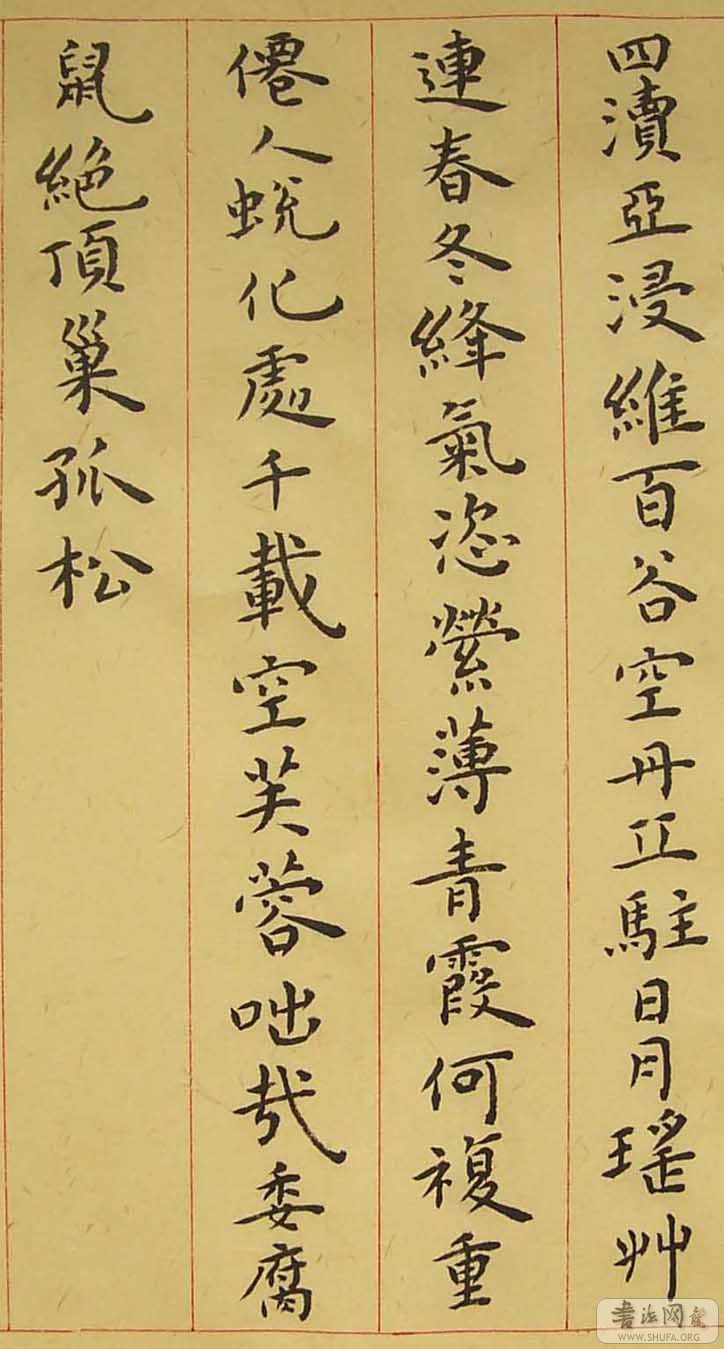 四瀆亞浸維百谷空丹丘駐日月瑤艸
連春冬絳氣恣縈薄青霞何複重
僊人蛻化處千載空芙蓉咄哉委腐
鼠絕頂巢孤松
書法网
WWW.SHUFA.ORG